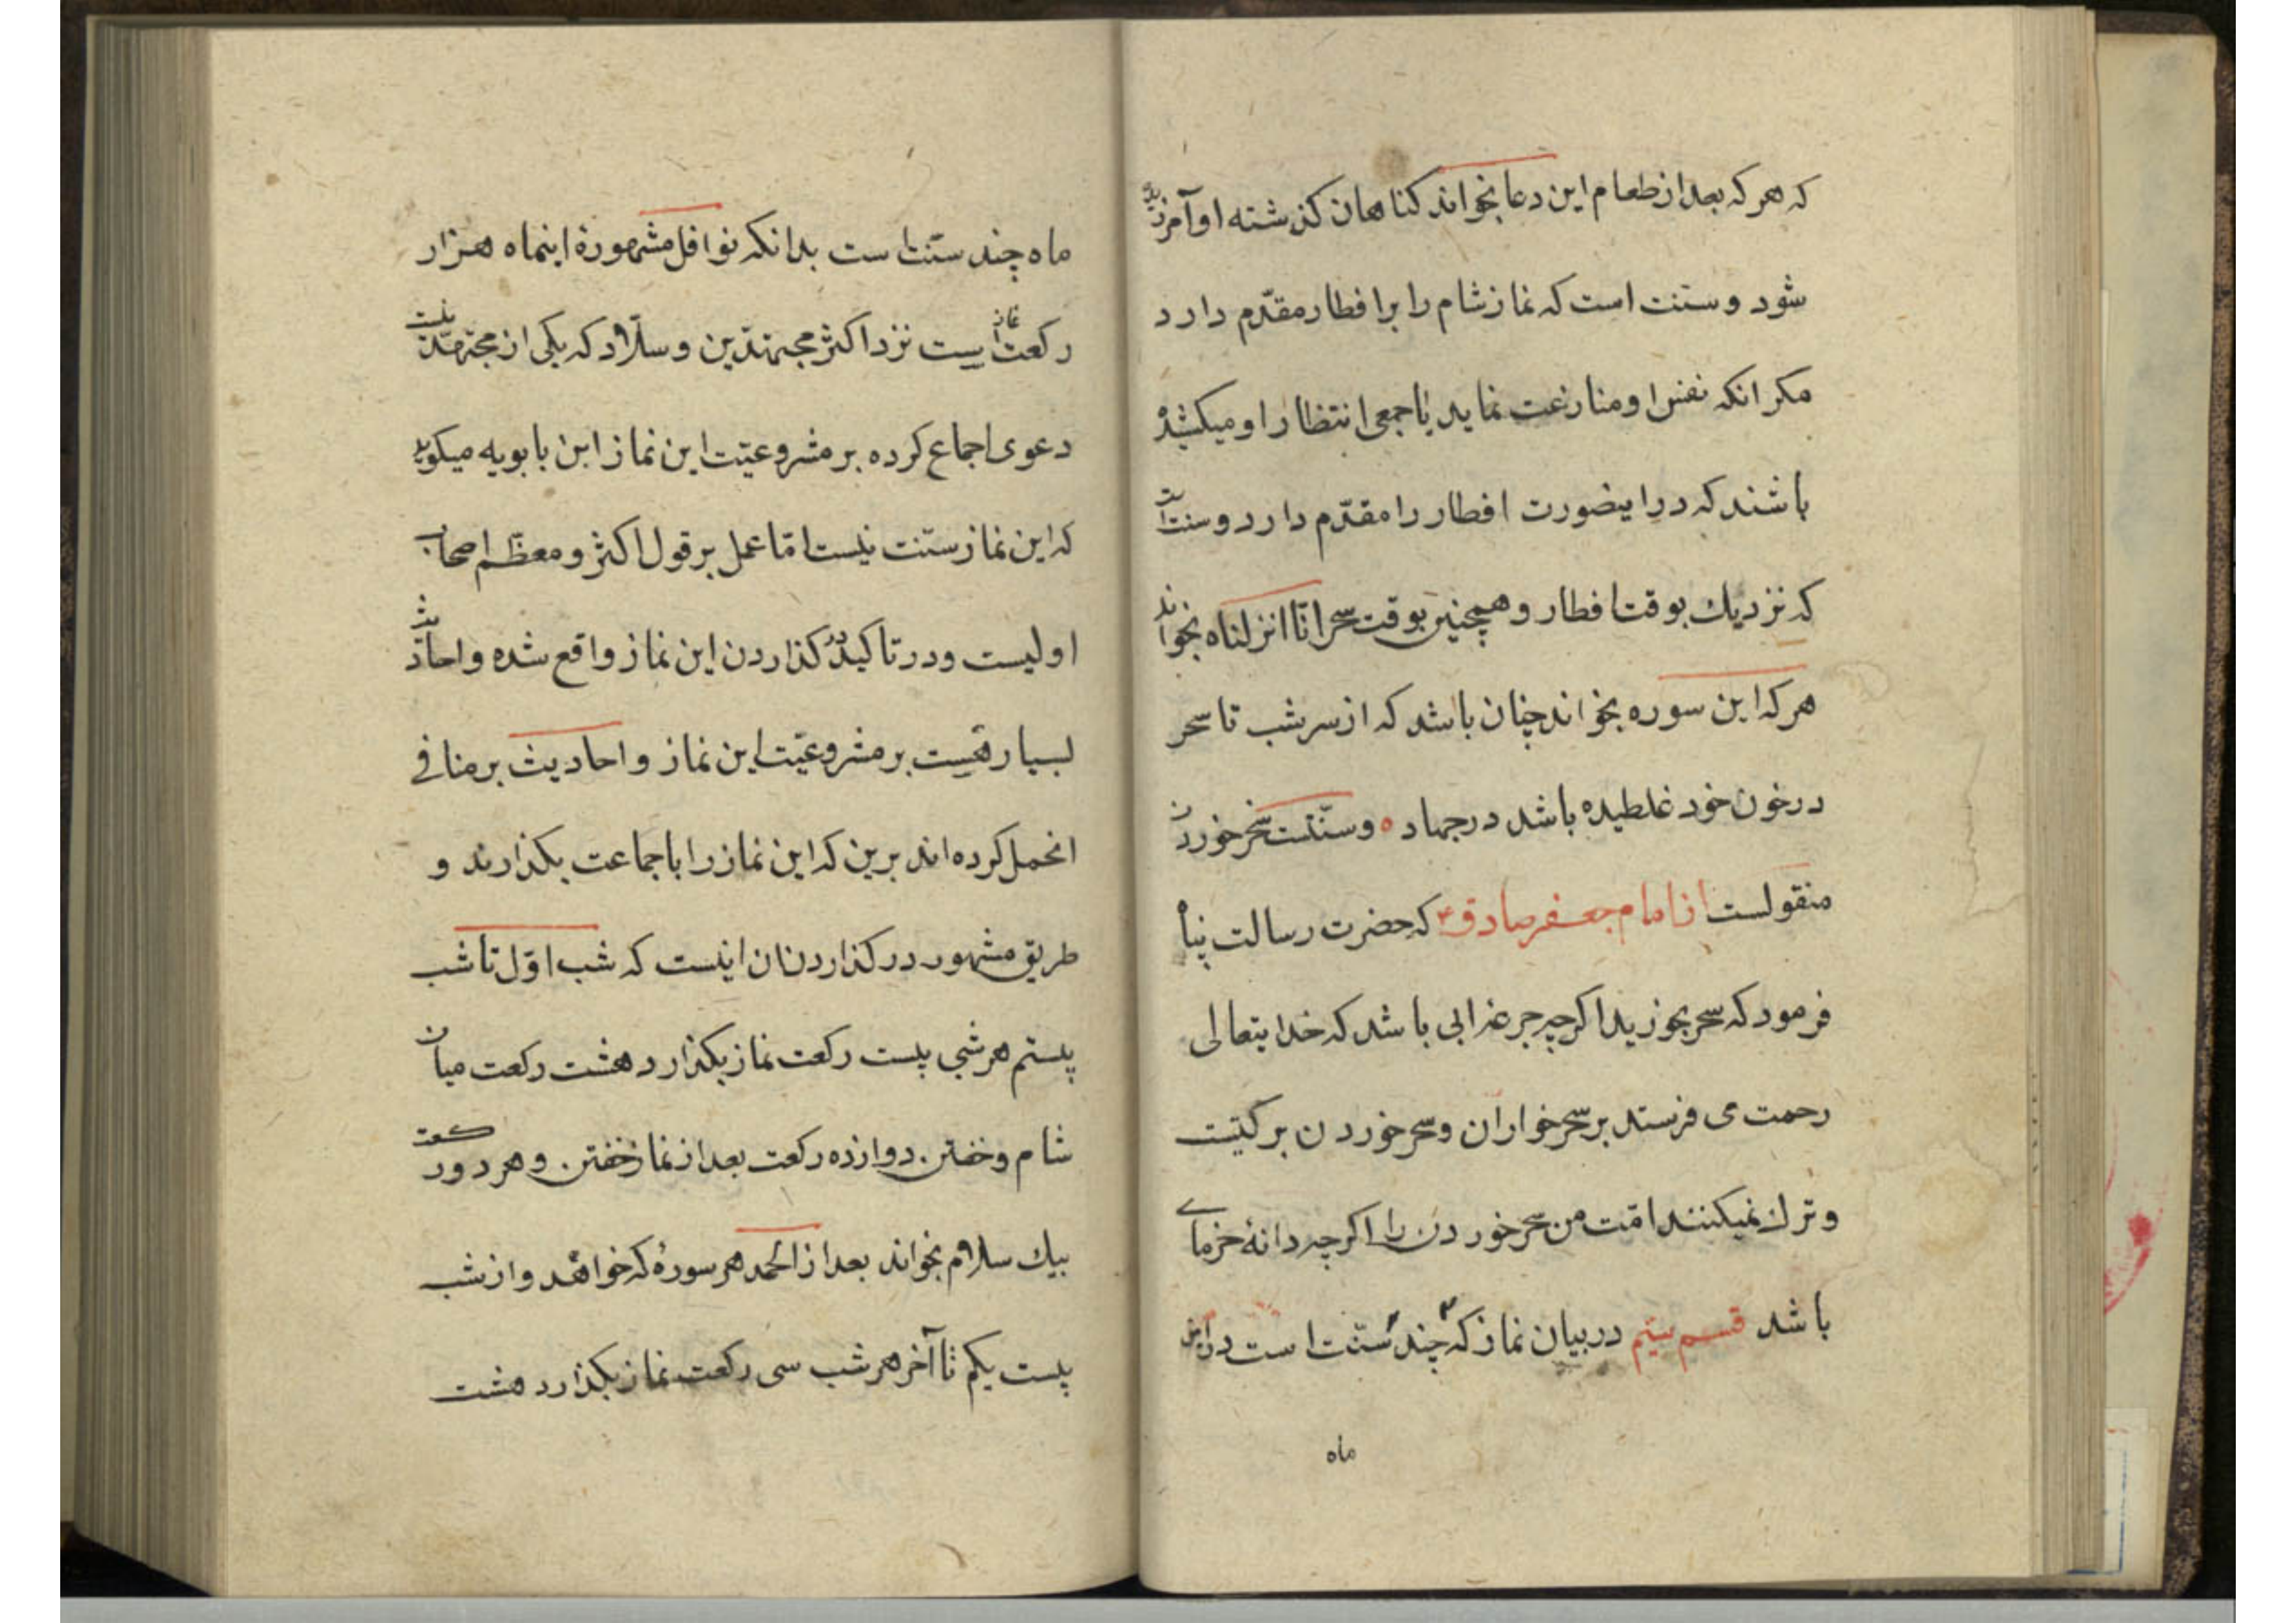 که هر که بعد از طعام این دعا بخواند کناهان کذشته او آمرزیده
شود و سنت است که نماز شام را بر افطار مقدّم دارد
مکر انکه نفس او منازعت نماید یا جمعی انتظار او میکشیده
باشند که در اینصورت افطار را مقدّم دارد و سنت است
که نزدیك بوقت افطار و همچنین بوقت سحر انّا انزلناه بخواند
هر که این سوره بخواند چنان باشد که از سر شب تا سحر
در خون خود غلطیده باشد در جهاد ه و سنّتست سحر خوردن
منقولست از امام جعفر صادق ع که حضرت رسالت پناه
فرمود که سحر بخورید اکرچه جرعهٔ ابی باشد که خدایتعالی
رحمت می فرستد بر سحر خواران و سحر خوردن برکتیست
و ترك نمیکنند امّت من سحر خوردن را اکرچه دانهٔ خرمای
باشد قسم سیّم در بیان نماز که چند سنّت است در این
ماه
ماه چند سنّت است بدانکه نوافل مشهورهٔ اینماه هزار
رکعت نماز است نزد اکثر مجتهدین و سلّار که یکی از مجتهدینست
دعوی اجماع کرده بر مشروعیّت این نماز ابن بابویه میکوید
که این نماز سنّت نیست امّا عمل بر قول اکثر و معظّم اصحاب
اولیست و در تاکید کذاردن این نماز واقع شده و احادیث
بسیار هست بر مشروعیّت این نماز و احادیث بر منافی
انحمل کرده اند برین که این نماز را با جماعت بکذارند و
طریق مشهور در کذاردن ان اینست که شب اوّل تا شب
بیستم هر شبی بیست رکعت نماز بکذارد هشت رکعت میان
شام و خفتن دوازده رکعت بعد از نماز خفتن و هر دو رکعت
بیك سلام بخواند بعد از الحمد هر سورهٔ که خواهد و از شب
بیست یکم تا آخر هر شب سی رکعت نماز بکذارد هشت